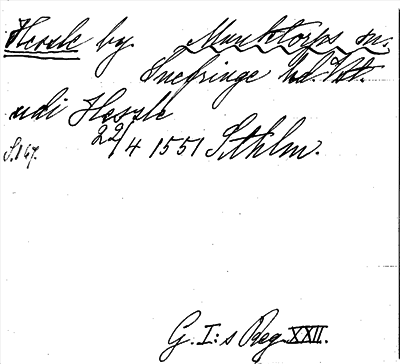 Hessle by. Munktorps sn.
Snefringe hd. Vstm.
udi Hessle
S. 167. 22/4 1551 Sthlm.
G. I:s Reg. XXII.